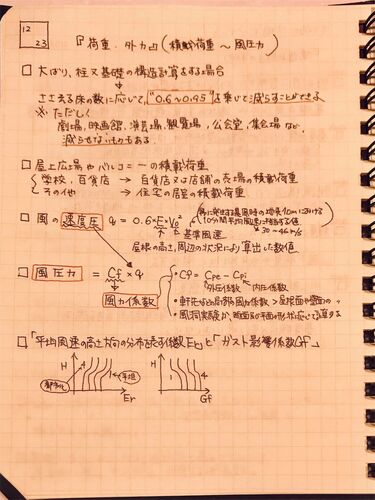 12
23
『荷重・外力』(積載荷重 〜 風圧力)
□ 大ばり、柱又は基礎の構造計算をする場合
ささえる床の数に応じて、"0.6〜0.95"を乗じて減らすことができる
※ ただし
劇場、映画館、演芸場、観覧場、公会堂、集会場など、
減らせないものもある。
□ 屋上広場やバルコニーの積載荷重
学校、百貨店 → 百貨店又は店舗の売場の積載荷重
その他 → 住宅の居室の積載荷重
□ 風の速度圧 q = 0.6·E·V₀²
10分間平均風速に相当する値
30〜46m/s
基準風速
屋根の高さ、周辺の状況により算出した数値
□ 風圧力 = Cf × q
風力係数
・Cf = Cpe − Cpi
外圧係数 内圧係数
・軒先など局部風力係数 > 屋根面や壁面の 〃
・風洞実験か、断面及び平面形状に応じて計算する
□ 「平均風速の高さ方向の分布を表す係数Er」と「ガスト影響係数Gf」
H
4
1
都市化
平坦
Er
H
1
4
Gf